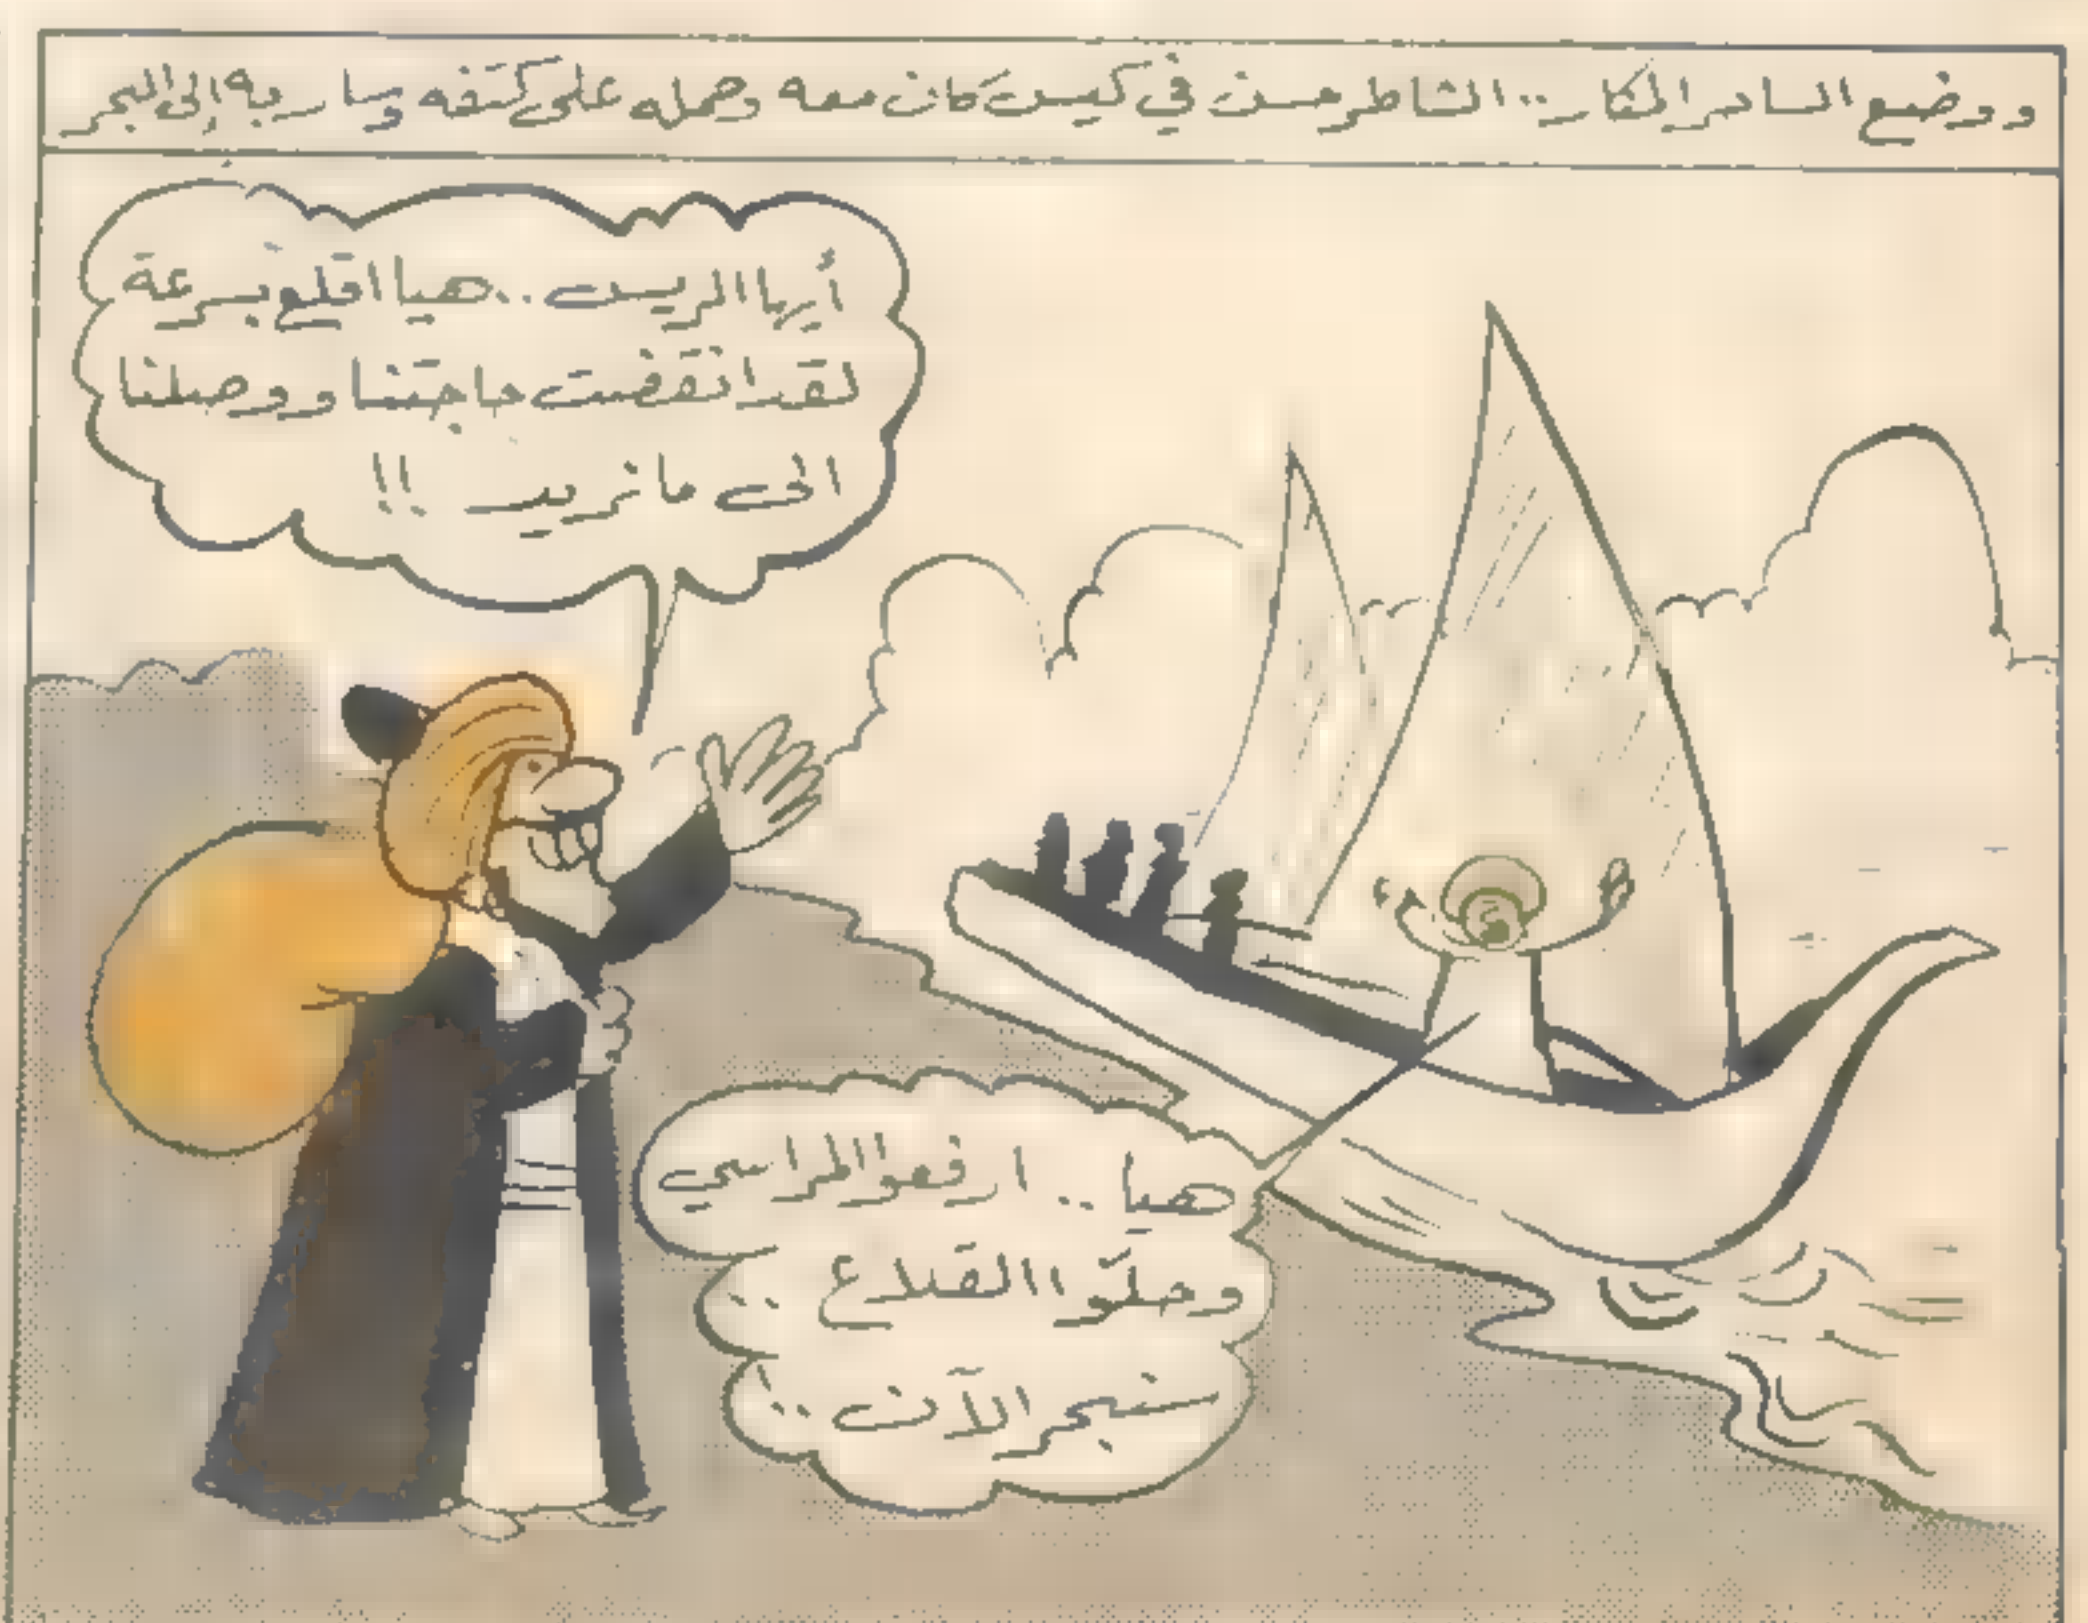 ووضع الساحر المكار .. الشاطر حسن في كيس كان معه وحمله على كتفه وسار به إلى البحر
أيها الريس .. هيا اقلع بسرعة
لقد انقضت حاجتنا ووصلنا
الى ما نريد !!
هيا .. ارفعوا المراسي
وحلّوا القلاع ..
سنبحر الآن ..